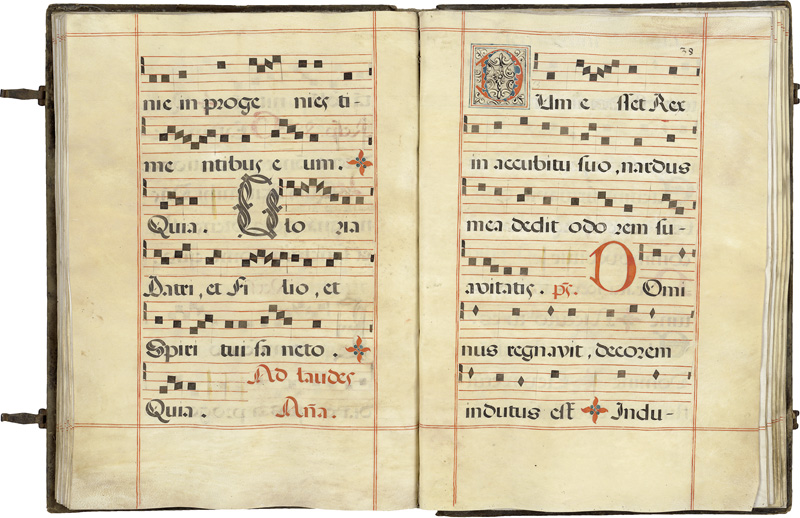 nie in proge nies ti-
me ntibus e um.
Quia. Glo ria
Patri, et Fi lio, et
Spiri tui sa ncto.
Ad laudes
Quia. Aña.
38
Cum e sset Rex
in accubitu suo, nardus
mea dedit odo rem su-
avitatis. ps. Domi
nus regnavit, decorem
indutus est Indu-